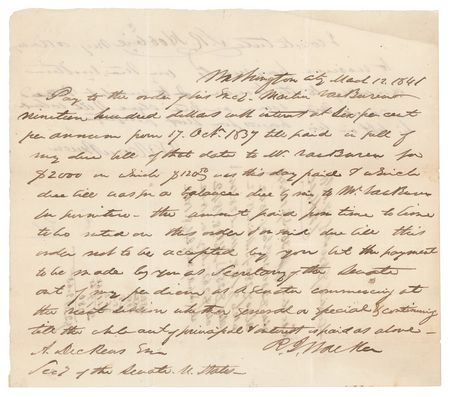 Washington City March 12. 1841
Pay to the order of his Excy. Martin Van Buren
nineteen hundred dollars with interest at six per cent
per annum from 17 Octr. 1837 till paid in full of
my due bill of that date to Mr. Van Buren for
$2000 on which $120 was this day paid & which
due bill was for a balance due by me to Mr. Van Buren
for furniture - the amount paid from time to time
to be noted on this order & on said due bill this
order not to be accepted by you but the payment
to be made by you as Secretary of the Senate
out of my per diem as a Senator commencing at
the next session whether general or special & continuing
till the whole amt of principal & interest is paid as above -
A. Dickens Esqr
Secy of the Senate U. States